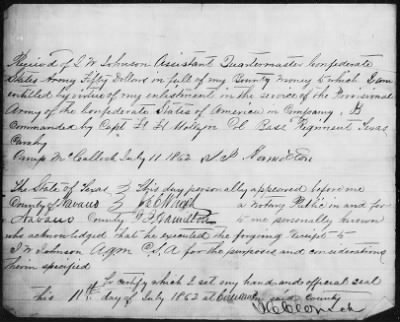 Received of J W Johnson Assistant Quartermaster Confederate
States Army Fifty Dollars in full of my Bounty money to which I am
entitled by virtue of my enlistment in the service of the Provisional
Army of the Confederate States of America in Company
Commanded by Capt Col Bass Regiment Texas
Cavalry
Camp McCulloch July 11 1862 Hamilton
The State of Texas } This day personally appeared before me
County of Navaro } a Notary Public in and for
Navaro County Hamilton to me personally known
who acknowledged that he executed the forgoing receipt to
J W Johnson Aqm C.S.A for the purposes and considerations
therin specified
To certify which I set my hand and official seal
this 11th day of July 1862 at said County